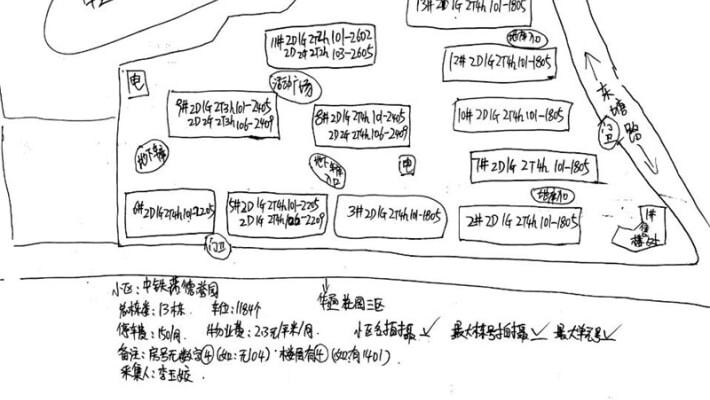 13# 2D1G 2T4h 101-1805
地库入口
11# 2D1G 2T2h 101-2602
2D2# 2T2h 103-2605
电
活动广场
12# 2D1G 2T4h 101-1805
东塘路
9# 2D1G 2T3h 101-2405
2D2G 2T3h 106-2409
8# 2D1G 2T4h 101-2405
2D2G 2T4h 106-2409
10# 2D1G 2T4h 101-1805
门卫
地下车库
地下车库入口
电
7# 2D1G 2T4h 101-1805
地库入口
6# 2D1G 2T4h 101-2205
5# 2D1G 2T4h 101-2205
2D1G 2T4h 106-2209
3# 2D1G 2T4h 101-1805
2# 2D1G 2T4h 101-1805
1#
门卫
小区:中铁诺德誉园
华画花园三区
总栋数:13栋 车位:1184个
停车费:150/月 物业费:2.3元/平米/月 小区名拍摄✓ 最大栋号拍摄✓ 最大单元号✓
备注:房号无数字④(如:无104)·楼层有④(如:有1401)
采集人:李玉姣